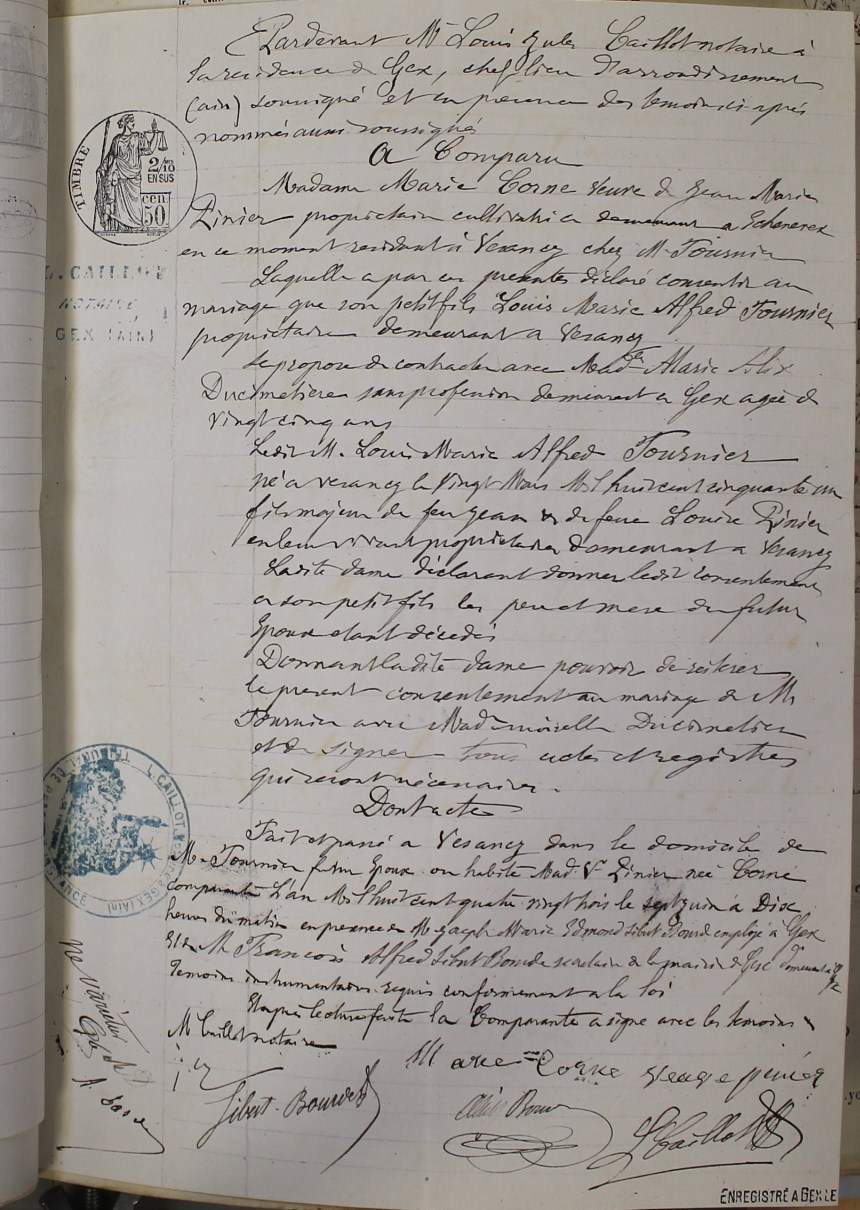 Pardevant Me Louis Jules Caillot notaire à
la residence de Gex, chef lieu d'arrondissement
(ain) soussigné et en presence des temoins ci après
nommés aussi soussignés
A Comparu
Madame Marie Corne veuve de Jean Marie
Pinier propriétaire cultivatrice demeurant a Echenevex
en ce moment residant à Vesancy chez M. Fournier
Laquelle a par ces presentes déclaré consentir au
mariage que son petit fils Louis Marie Alfred Fournier
propriétaire demeurant a Vesancy
se propose de contracter avec Madlle Marie Alix
Ducimetiere sans profession demeurant a Gex agée de
vingt cinq ans
Ledit M. Louis Marie Alfred Fournier
né a vesancy le vingt Mars Mil huit cent cinquante un
fils majeur de feu Jean & de feue Louise Pinier
en leur vivant propriétaires demeurant a Vesancy
Ladite dame déclarant donner ledit consentement
a son petit fils les pere et mere du futur
Epoux etant décédés
Donnant ladite dame pouvoir de reiterer
le present consentement au mariage de M.
Fournier avec Mademoiselle Ducimetier
et de signer tous actes et registres
qui seront nécessaires.
Dont acte
Fait et passé a Vesancy dans le domicile de
M. Fournier futur Epoux ou habite Made Ve Pinier née Corne
comparante L'an Mil huit cent quatre vingt trois le sept Juin à Dix
heures du matin en presence de M. Joseph Marie Edmond Sibut Bourde employé à Gex
Et de M. François Alfred Sibut Bourde secretaire de la mairie de Gex demeurant a Gex
Temoins instrumentaires requis conformement a la loi
Et apres lecture faite la Comparante a signé avec les temoins &
Me Caillot notaire
Marie Corne veuve pinier
Sibut-Bourde
LCaillot
TIMBRE
2/10
EN SUS
50 cen
L. CAILLOT
NOTAIRE
GEX (AIN)
L. CAILLOT
GEX (Ain)
ne varietur
ENREGISTRÉ A GEX LE